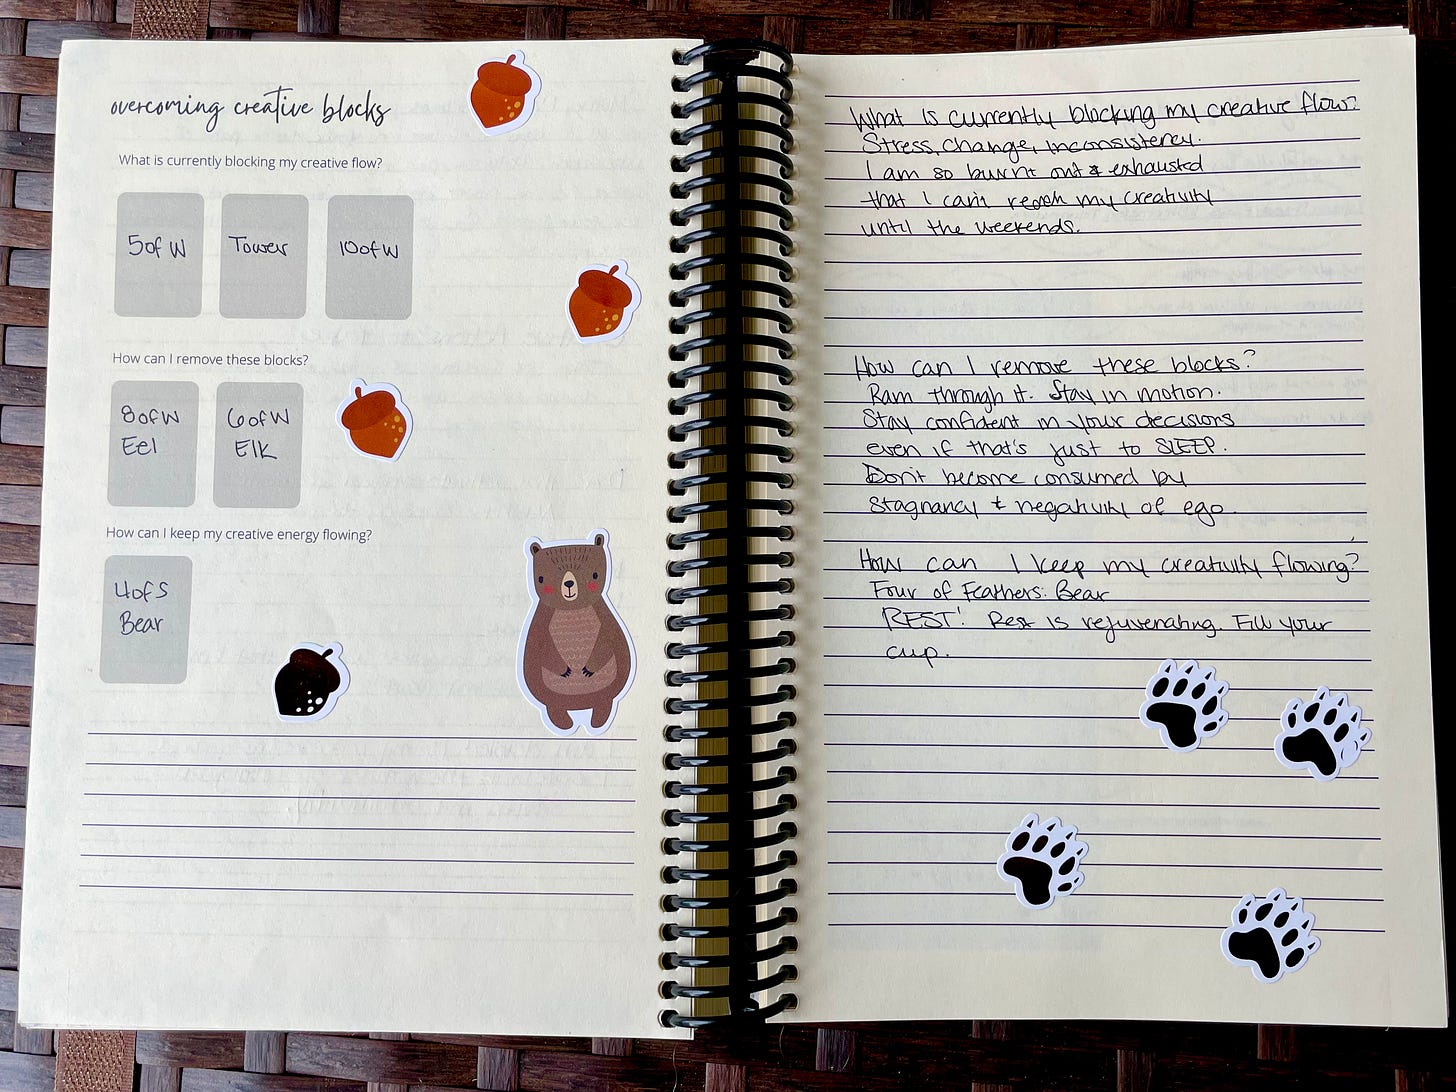 overcoming creative blocks
What is currently blocking my creative flow?
5 of W
Tower
10 of W
How can I remove these blocks?
8 of W
Eel
6 of W
Elk
How can I keep my creative energy flowing?
4 of S
Bear
What is currently blocking my creative flow?
Stress, change, inconsistency.
I am so burnt out & exhausted
that I can't reach my creativity
until the weekends.
How can I remove these blocks?
Ram through it. Stay in motion.
Stay confident in your decisions
even if that's just to SLEEP.
Don't become consumed by
stagnancy + negativity of ego.
How can I keep my creativity flowing?
Four of Feathers: Bear
REST! Rest is rejuvenating. Fill your
cup.